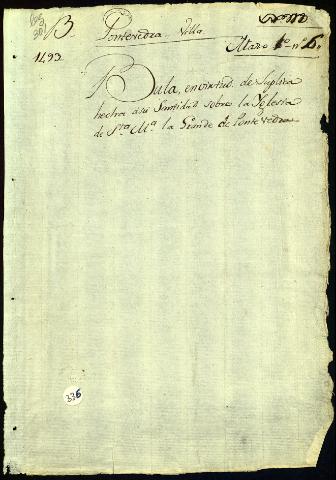 B Pontevedra Villa
Atazo 1º nº 6
1493
Bula, en virtud de suplica
hecha a su Santidad sobre la Yglesia
de Sta Ma la Grande de Pontevedra
336